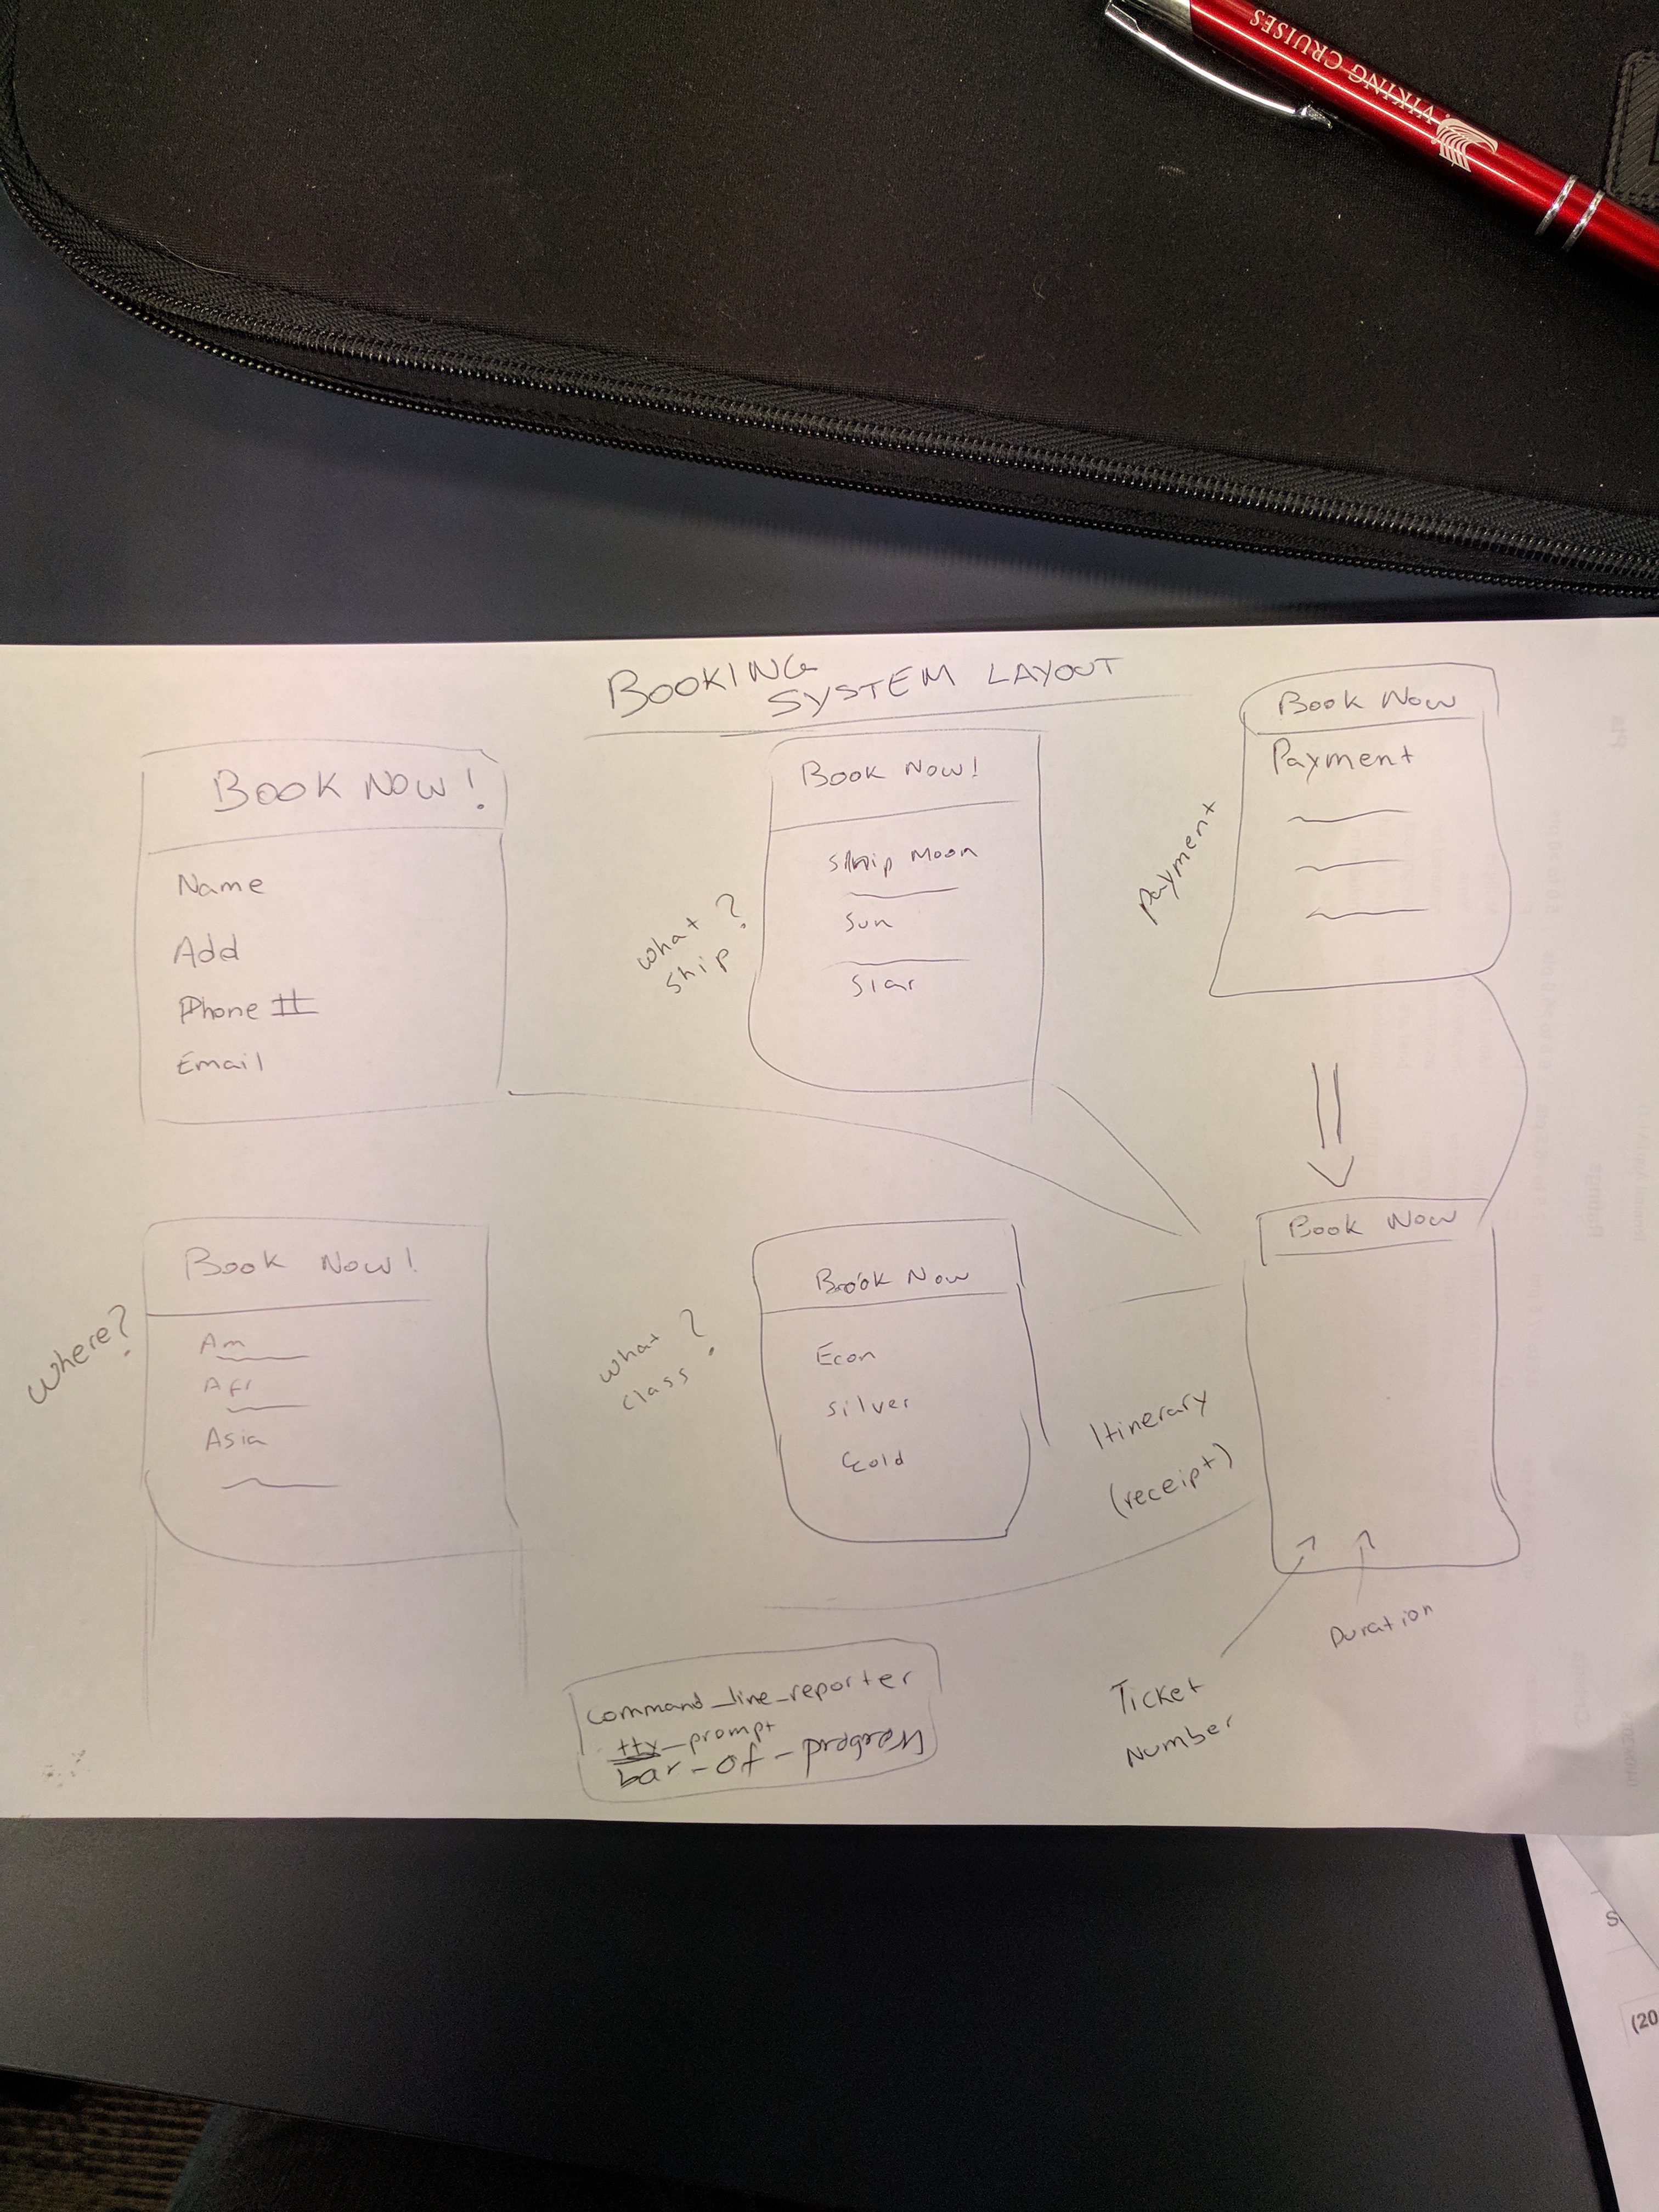 VIKING CRUISES
BOOKING
SYSTEM LAYOUT
BOOK NOW!
Name
Add
Phone #
Email
What
Ship?
Book Now!
Ship Moon
Sun
Star
Payment
Book Now
Payment
Where?
Book Now!
Am
Afr
Asia
What
Class?
Book Now
Econ
Silver
Gold
Itinerary
(receipt)
Book Now
Ticket
Number
Duration
command_line_reporter
tty_prompt
bar-of-
S
(20